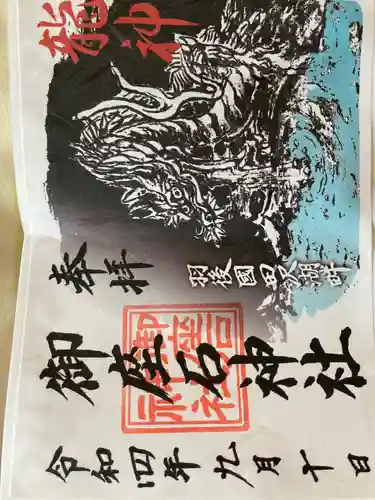 龍神
羽後國田沢湖畔
奉拝
御座石神社
御座石神社
令和四年九月十日